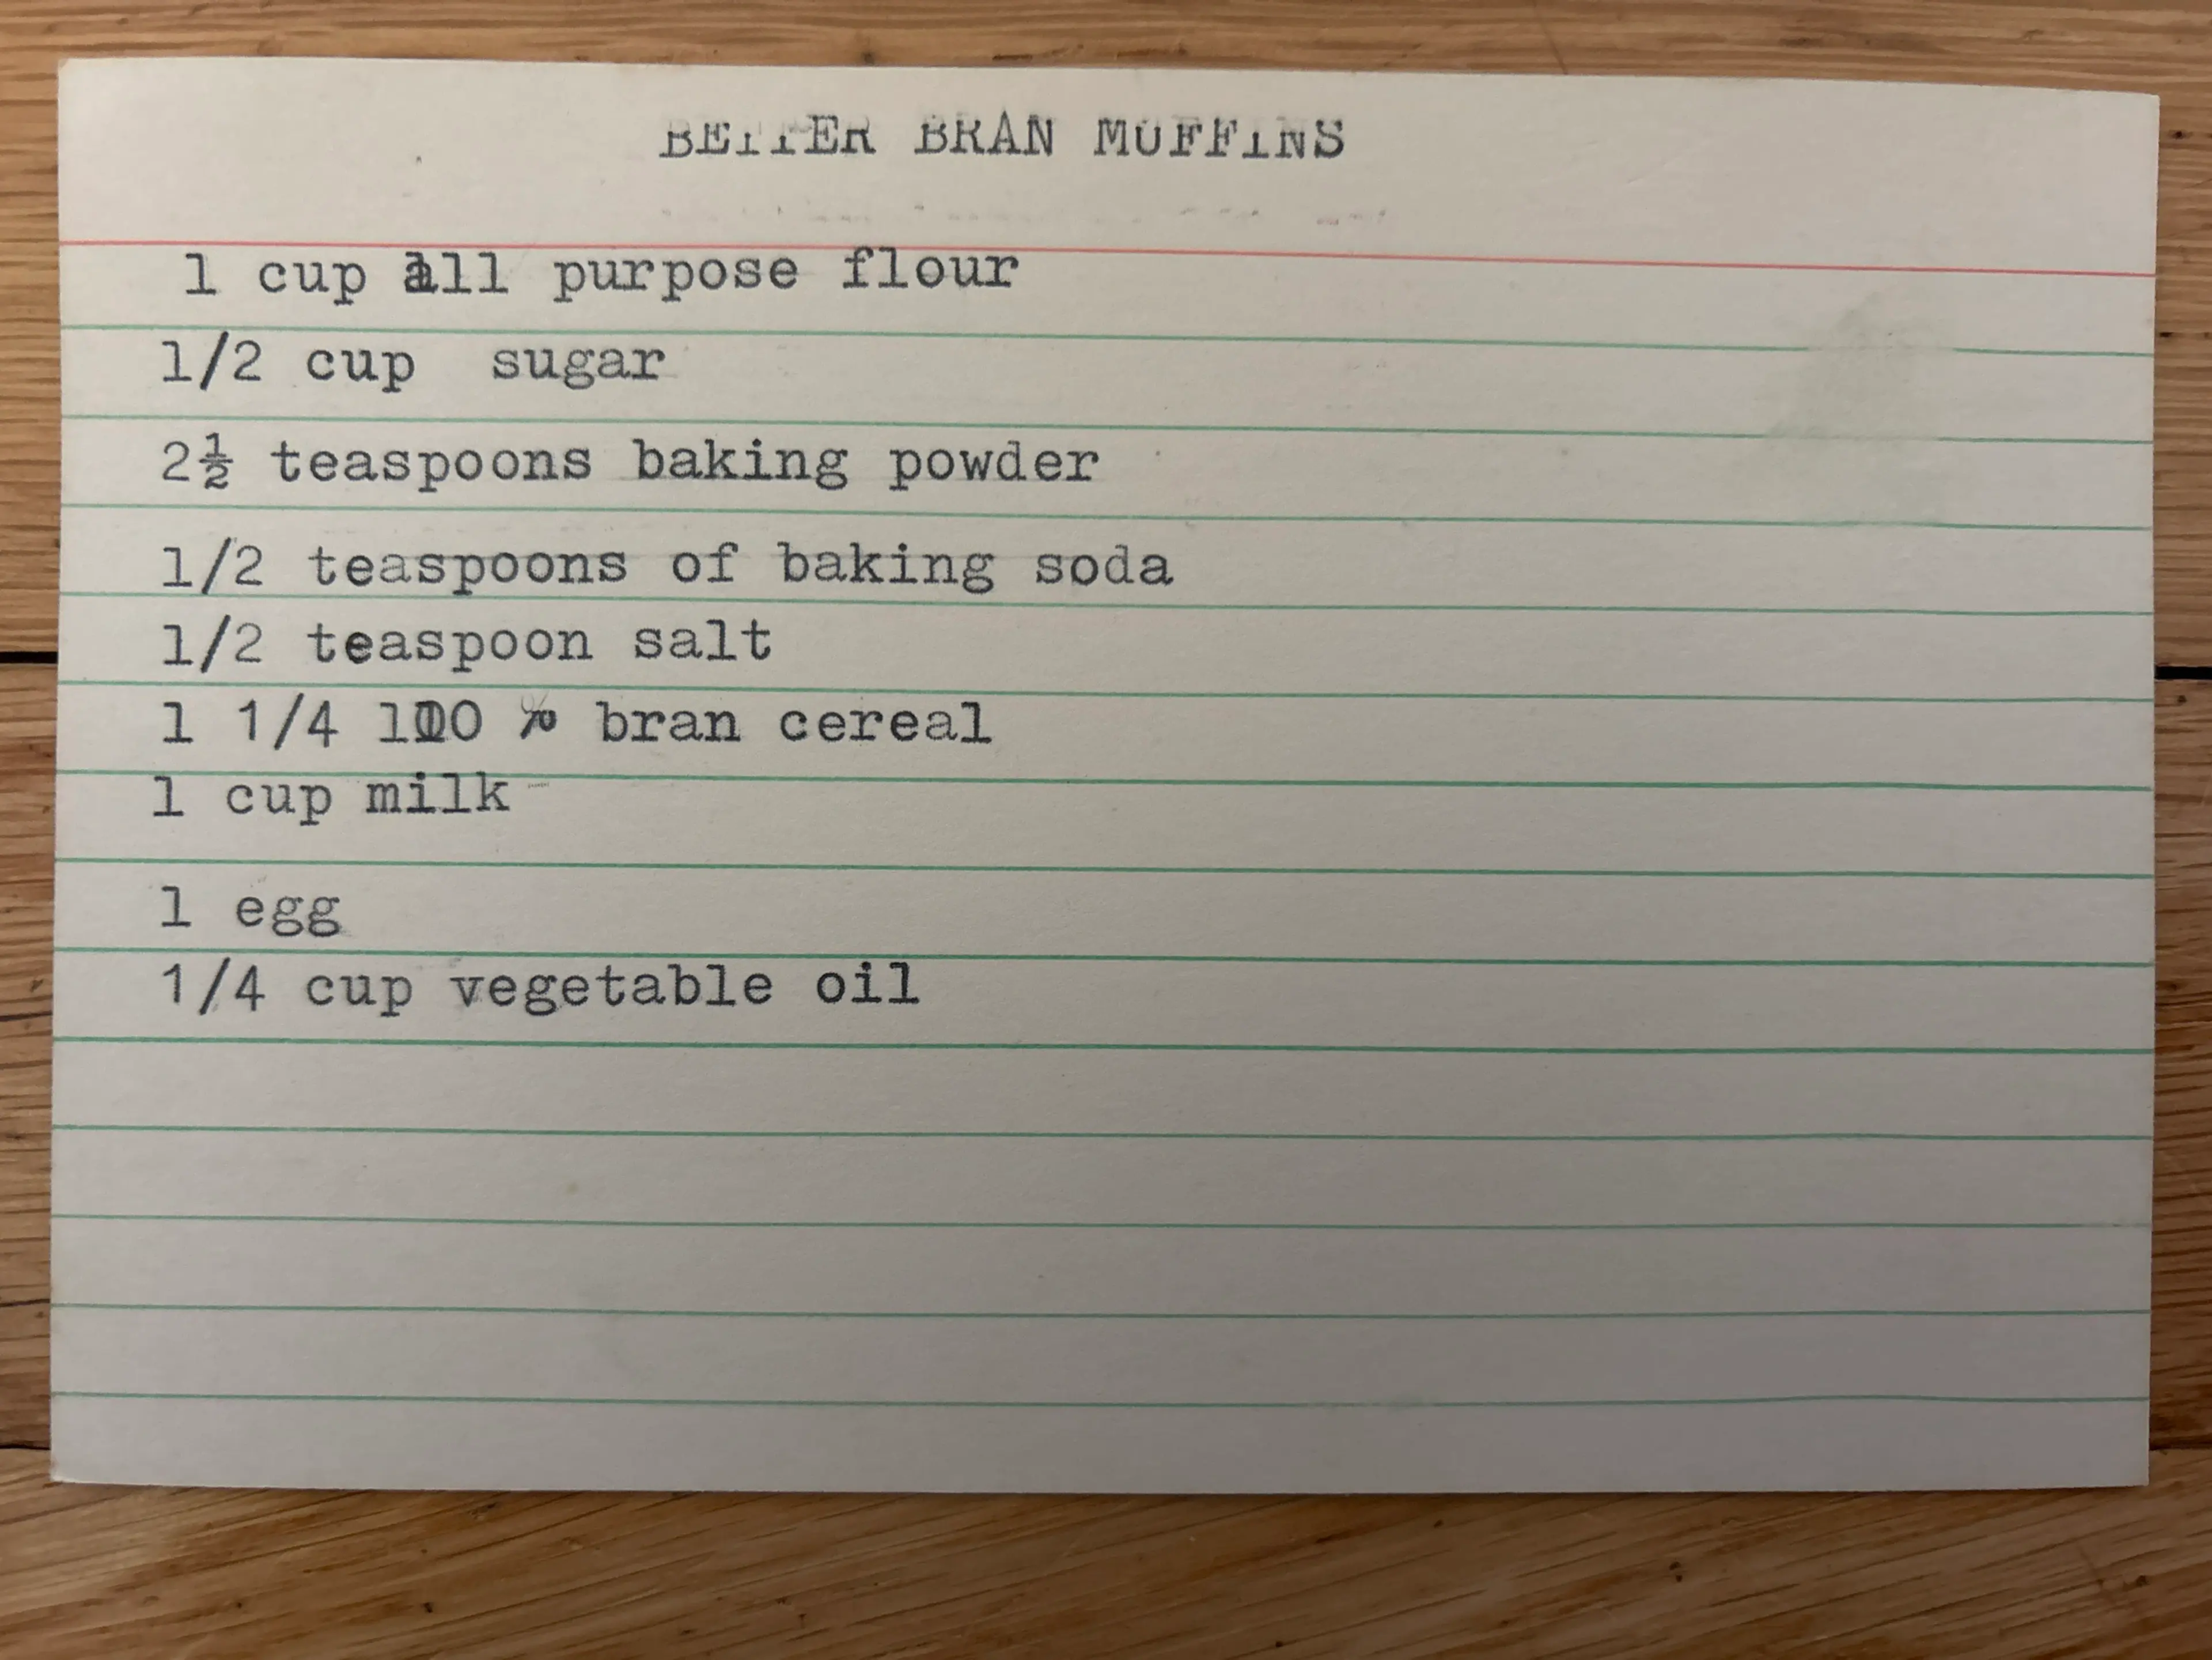 BETTER BRAN MUFFINS
1 cup all purpose flour
1/2 cup sugar
2½ teaspoons baking powder
1/2 teaspoons of baking soda
1/2 teaspoon salt
1 1/4 100 % bran cereal
1 cup milk
1 egg
1/4 cup vegetable oil